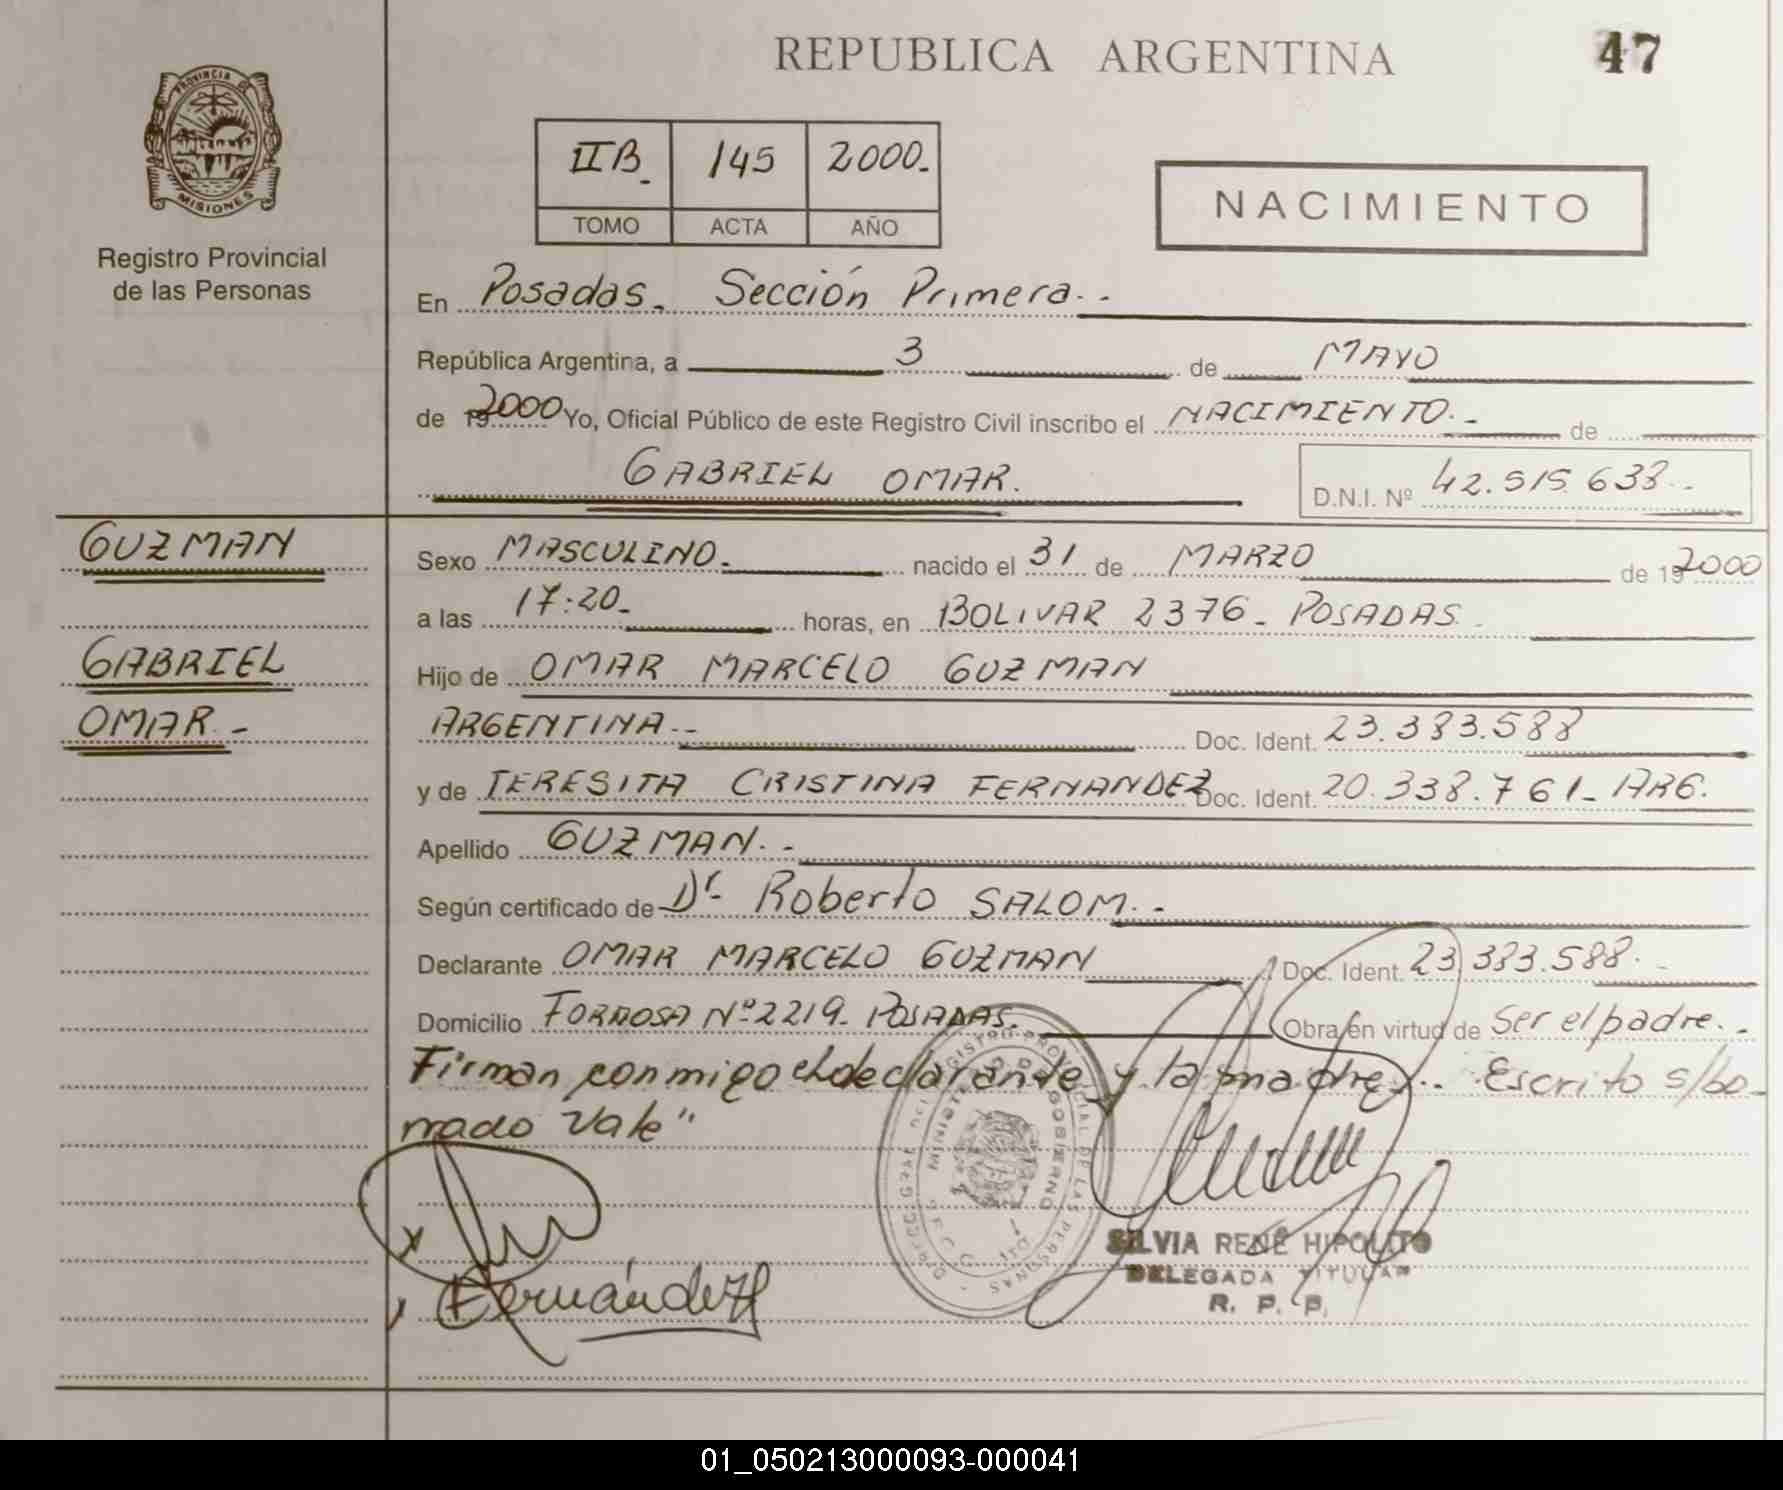 REPUBLICA ARGENTINA
47
PROVINCIA DE
MISIONES
Registro Provincial
de las Personas
IIB.
145
2000.
TOMO
ACTA
AÑO
NACIMIENTO
En Posadas. Sección Primera.-
República Argentina, a 3 de MAYO
de 2000 Yo, Oficial Público de este Registro Civil inscribo el NACIMIENTO.- de
GABRIEL OMAR.
D.N.I. Nº 42.515.633.-
GUZMAN
GABRIEL
OMAR.-
Sexo MASCULINO. nacido el 31 de MARZO de 2000
a las 17:20. horas, en BOLIVAR 2376 - POSADAS.
Hijo de OMAR MARCELO GUZMAN
ARGENTINA.- Doc. Ident. 23.383.588
y de TERESITA CRISTINA FERNANDEZ Doc. Ident. 20.338.761 - ARG.
Apellido GUZMAN.-
Según certificado de Dr. Roberto SALOM.-
Declarante OMAR MARCELO GUZMAN Doc. Ident. 23.383.588.-
Domicilio FORMOSA Nº 2219 - POSADAS. Obra en virtud de Ser el padre.-
Firman conmigo el declarante y la madre.- Escrito s/bo-
rrado Vale"
Fernández
SILVIA RENÉ HIPOLITO
DELEGADA TITULAR
R. P. P.
01_050213000093-000041